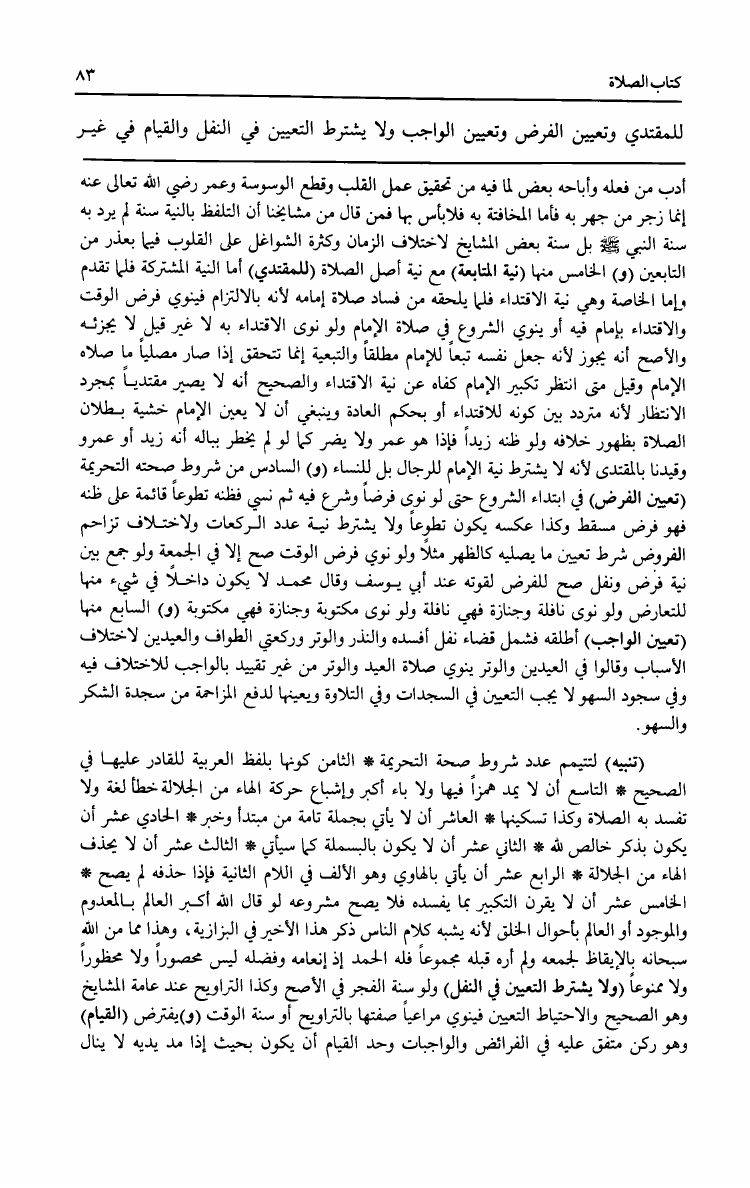 كتاب الصلاة
٨٣
للمقتدي وتعيين الفرض وتعيين الواجب ولا يشترط التعيين في النفل والقيام في غيـر
أدب من فعله وأباحه بعض لما فيه من تحقيق عمل القلب وقطع الوسوسة وعمر رضي الله تعالى عنه
إنما زجر من جهر به فأما المخافتة به فلابأس بها فمن قال من مشايخنا أن التلفظ بالنية سنة لم يرد به
سنة النبي ﷺ بل سنة بعض المشايخ لاختلاف الزمان وكثرة الشواغل على القلوب فيما بعذر من
التابعين (و) الخامس منها (نية المتابعة) مع نية أصل الصلاة (للمقتدي) أما النية المشتركة فلما تقدم
وإما الخاصة وهي نية الاقتداء فلما يلحقه من فساد صلاة إمامه لأنه بالالتزام فينوي فرض الوقت
والاقتداء بإمام فيه أو ينوي الشروع في صلاة الإمام ولو نوى الاقتداء به لا غير قيل لا يجزئـه
والأصح أنه يجوز لأنه جعل نفسه تبعاً للإمام مطلقاً والتبعية إنما تتحقق إذا صار مصلياً ما صلاه
الإمام وقيل متى انتظر تكبير الإمام كفاه عن نية الاقتداء والصحيح أنه لا يصير مقتديـاً بمجرد
الانتظار لأنه متردد بين كونه للاقتداء أو بحكم العادة وينبغي أن لا يعين الإمام خشية بـطلان
الصلاة بظهور خلافه ولو ظنه زيداً فإذا هو عمر ولا يضر كما لو لم يخطر بباله أنه زيد أو عمرو
وقيدنا بالمقتدى لأنه لا يشترط نية الإمام للرجال بل للنساء (و) السادس من شروط صحته التحريمة
(تعيين الفرض) في ابتداء الشروع حتى لو نوى فرضاً وشرع فيه ثم نسي فظنه تطوعاً قائمة على ظنه
فهو فرض مسقط وكذا عكسه يكون تطوعاً ولا يشترط نيـة عدد الـركعات ولاختـلاف تزاحم
الفروض شرط تعيين ما يصليه كالظهر مثلاً ولو نوي فرض الوقت صح إلا في الجمعة ولو جمع بين
نية فرض ونفل صح للفرض لقوته عند أبي يـوسف وقال محمـد لا يكون داخـلاً في شيء منها
للتعارض ولو نوى نافلة وجنازة فهي نافلة ولو نوى مكتوبة وجنازة فهي مكتوبة (و) السابع منها
(تعيين الواجب) أطلقه فشمل قضاء نفل أفسده والنذر والوتر وركعتي الطواف والعيدين لاختلاف
الأسباب وقالوا في العيدين والوتر ينوي صلاة العيد والوتر من غير تقييد بالواجب للاختلاف فيه
وفي سجود السهو لا يجب التعيين في السجدات وفي التلاوة ويعينها لدفع المزاحمة من سجدة الشكر
والسهو.
(تنبيه) لتتيمم عدد شروط صحة التحريمة * الثامن كونها بلفظ العربية للقادر عليهـا في
الصحيح * التاسع أن لا يمد همزاً فيها ولا باء أكبر وإشباع حركة الهاء من الجلالة خطأ لغة ولا
تفسد به الصلاة وكذا تسكينها * العاشر أن لا يأتي بجملة تامة من مبتدأ وخبر * الحادي عشر أن
يكون بذكر خالص لله * الثاني عشر أن لا يكون بالبسملة كما سيأتي * الثالث عشر أن لا يحذف
الهاء من الجلالة * الرابع عشر أن يأتي بالهاوي وهو الألف في اللام الثانية فإذا حذفه لم يصح *
الخامس عشر أن لا يقرن التكبير بما يفسده فلا يصح مشروعه لو قال الله أكـبر العالم بـالمعدوم
والموجود أو العالم بأحوال الخلق لأنه يشبه كلام الناس ذكر هذا الأخير في البزازية، وهذا مما من الله
سبحانه بالإيقاظ لجمعه ولم أره قبله مجموعاً فله الحمد إذ إنعامه وفضله ليس محصوراً ولا محظوراً
ولا ممنوعاً (ولا يشترط التعيين في النفل) ولو سنة الفجر في الأصح وكذا التراويح عند عامة المشايخ
وهو الصحيح والاحتياط التعيين فينوي مراعياً صفتها بالتراويح أو سنة الوقت (و)يفترض (القيام)
وهو ركن متفق عليه في الفرائض والواجبات وحد القيام أن يكون بحيث إذا مد يديه لا ينال